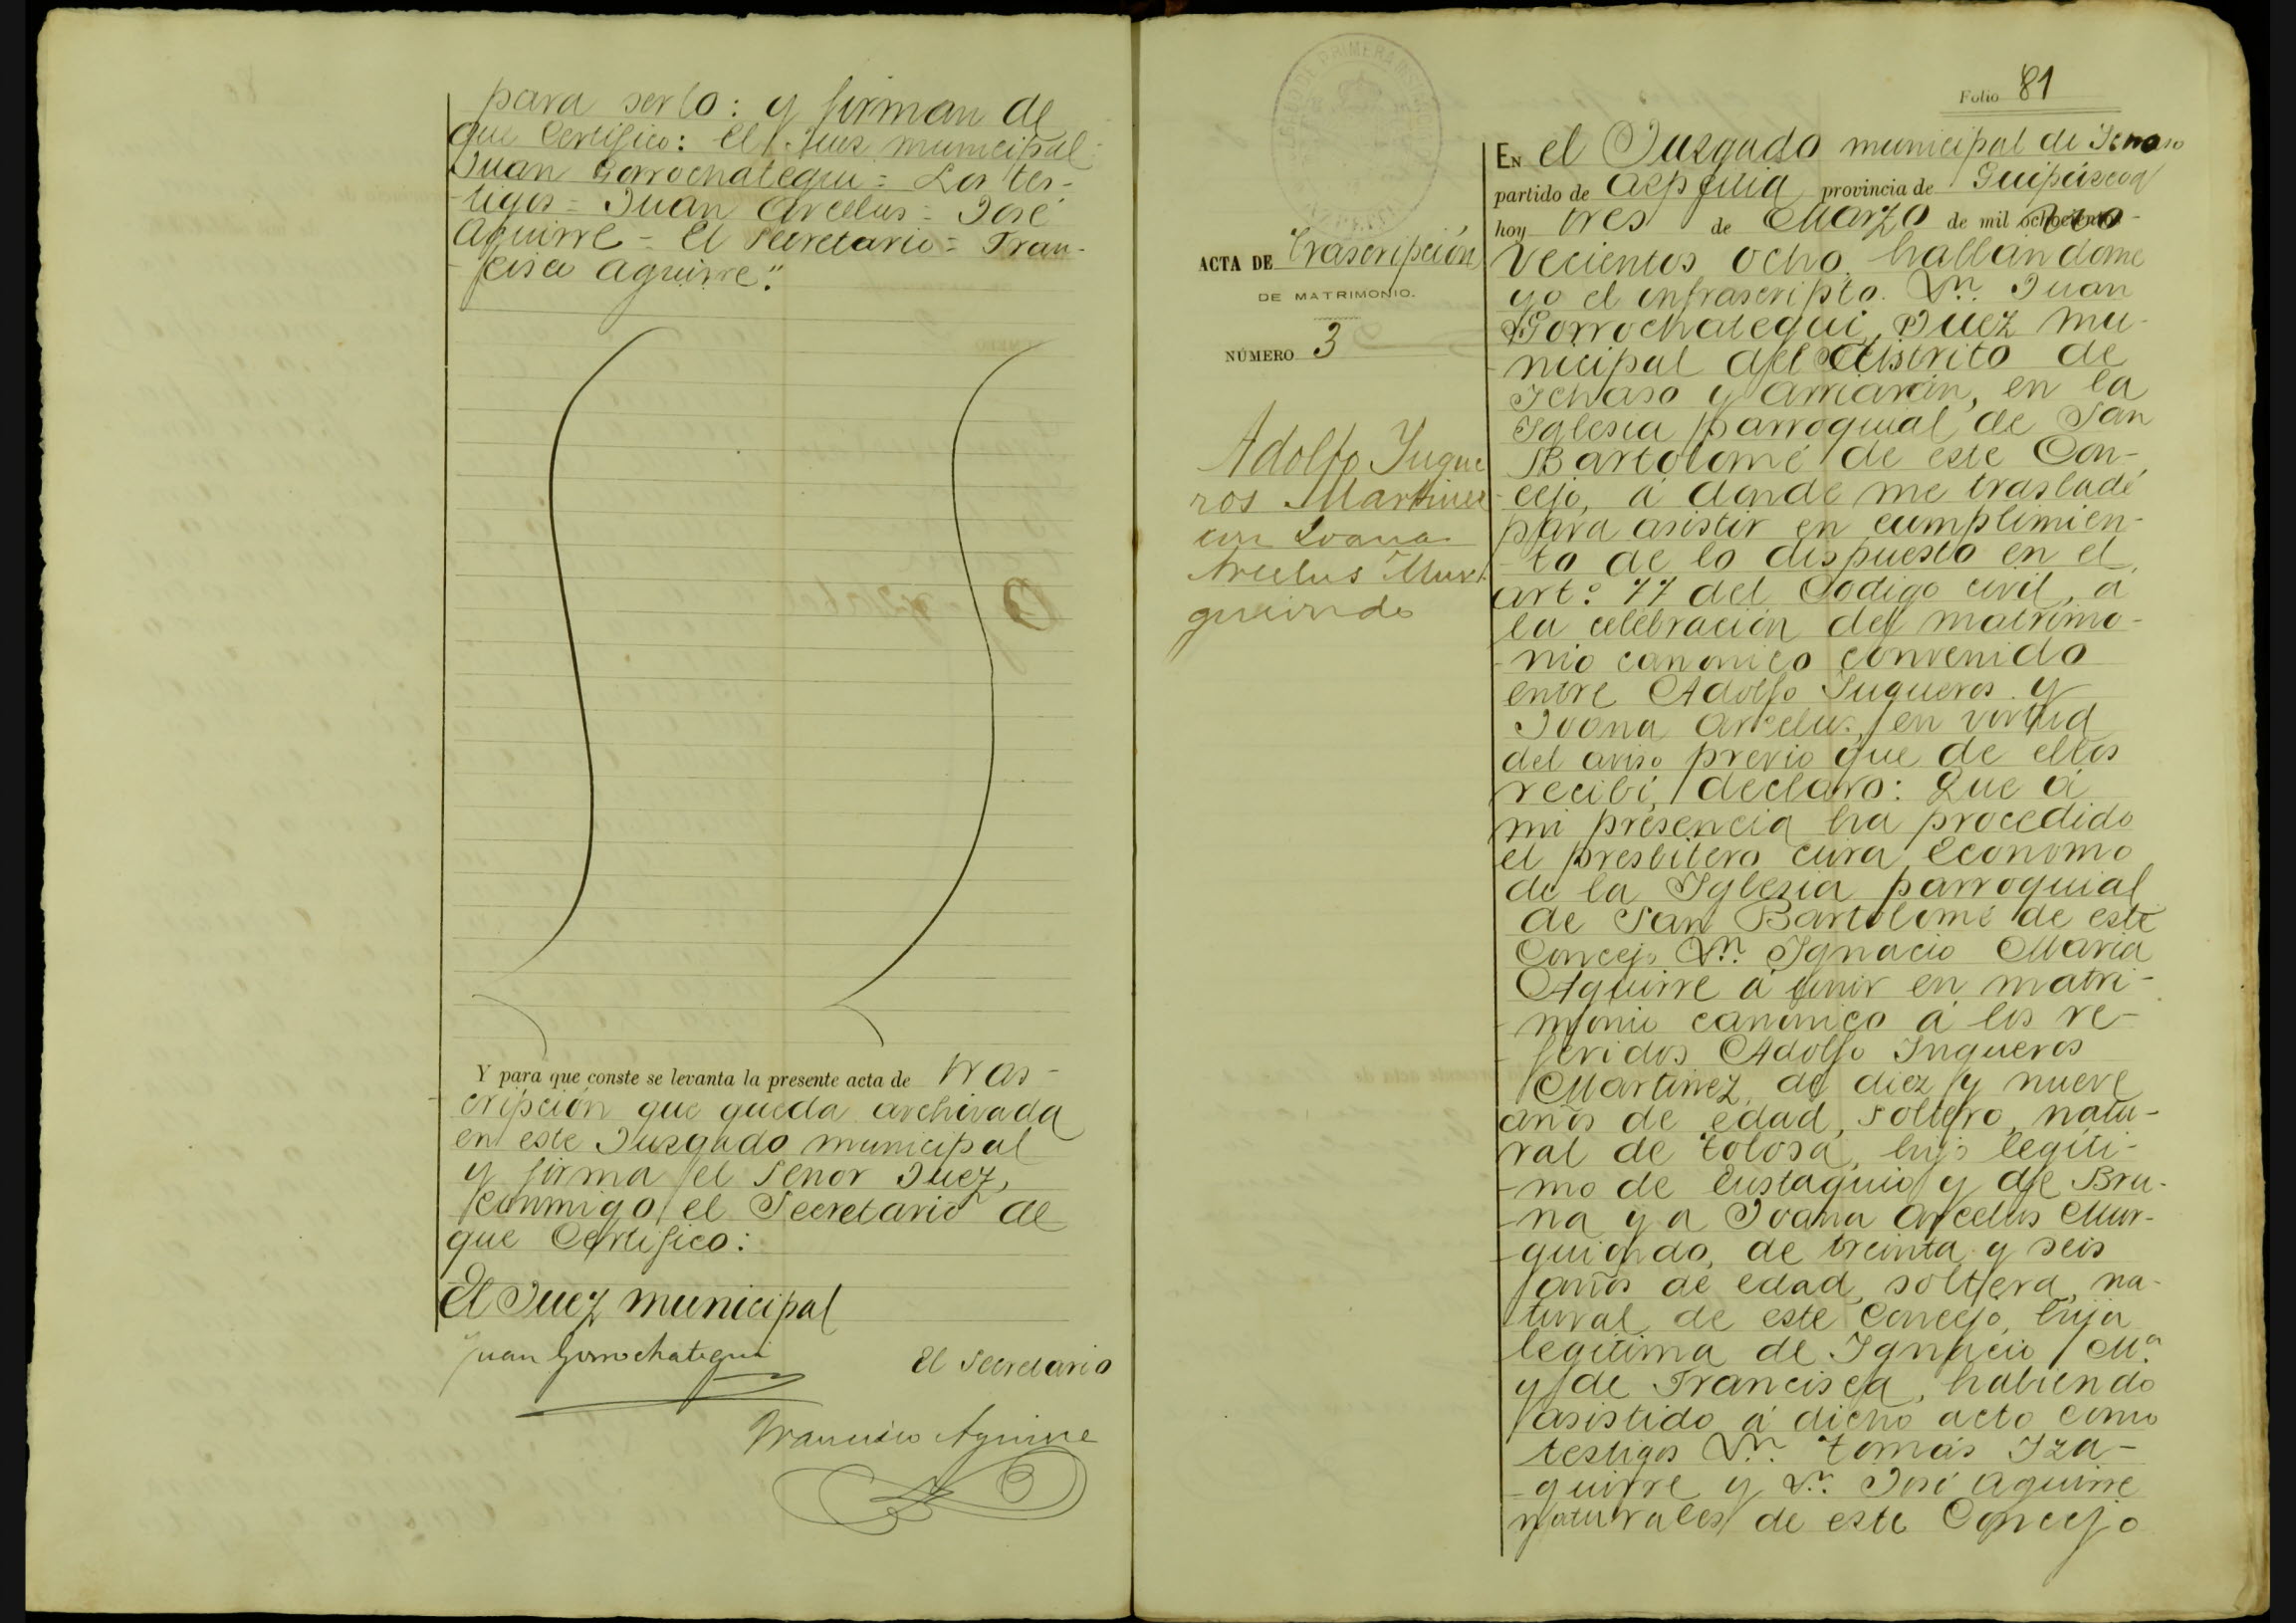 para serlo: y firman de
que Certifico: El Juez municipal
Juan Gorrochategui = Los tes-
tigos = Juan Arcelus = José
Aguirre = El Secretario = Fran-
cisco Aguirre."
Y para que conste se levanta la presente acta de tras-
cripción que queda archivada
en este Juzgado municipal
y firma el Señor Juez,
conmigo el Secretario de
que Certifico:
El Juez municipal
Juan Gorrochategui
El Secretario
Francisco Aguirre
JUZGADO DE PRIMERA INSTANCIA
AZPEITIA
ACTA DE Trascripción
DE MATRIMONIO.
NÚMERO 3
Adolfo Jugue
ros Martinez
con Joana
Arcelus Mur
guiondo
Folio 81
EN el Juzgado municipal de Ichaso
partido de Azpeitia provincia de Guipúzcoa
hoy tres de Marzo de mil ochocientos no-
vecientos ocho. hallandome
yo el infrascripto Dn. Juan
Gorrochategui, Juez mu-
nicipal del distrito de
Ichaso y Arriarán, en la
Iglesia parroquial de San
Bartolomé de este Con-
cejo, á donde me trasladé
para asistir en cumplimien-
to de lo dispuesto en el
art.º 77 del Codigo civil, á
la celebración del matrimo-
nio canonico convenido
entre Adolfo Jugueros y
Joana Arcelus, en virtud
del aviso previo que de ellos
recibí, declaro: Que á
mi presencia ha procedido
el presbitero cura Economo
de la Iglesia parroquial
de San Bartolomé de este
Concejo Dn. Ignacio Maria
Aguirre á unir en matri-
monio canonico á los re-
feridos Adolfo Jugueros
Martinez, de diez y nueve
años de edad, soltero, natu-
ral de Tolosa, hijo legiti-
mo de Eustaquio y de Bru-
na y a Joana Arcelus Mur-
guiondo, de treinta y seis
años de edad, soltera, na-
tural de este Concejo, hija
legitima de Ignacio Mª
y de Francisca, habiendo
asistido á dicho acto como
testigos Dn. Tomás Iza-
guirre y Dn. José Aguirre
naturales de este Concejo